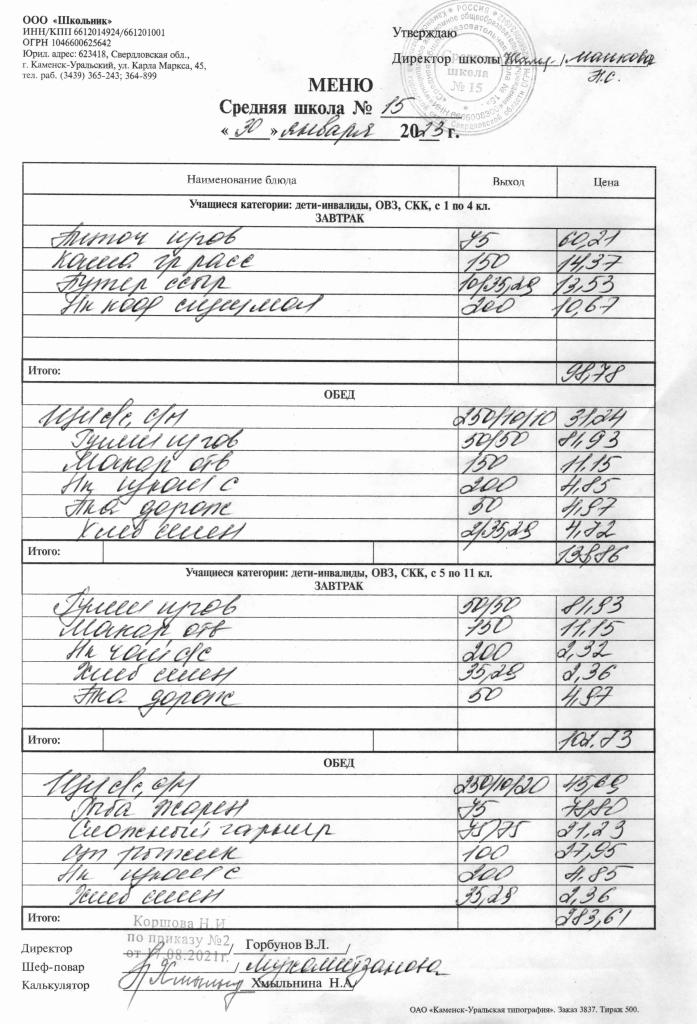 ООО «Школьник»
ИНН/КПП 6612014924/661201001
ОГРН 1046600625642
Юрид. адрес: 623418, Свердловская обл.,
г. Каменск-Уральский, ул. Карла Маркса, 45,
тел. раб. (3439) 365-243; 364-899
Утверждаю
Директор школы / Манкова Н.С.
Средняя школа № 15
МЕНЮ
Средняя школа № 15
« 30 » января 2023 г.
Наименование блюда Выход Цена
Учащиеся категории: дети-инвалиды, ОВЗ, СКК, с 1 по 4 кл.
ЗАВТРАК
75 60,21
Каша гр расс 150 14,37
Бутер ссыр 10/35,29 13,53
Нк коф сцимол 200 10,67
Итого: 98,78
ОБЕД
Щи с/с, с/н 250/10/10 31.24
Гуляш изгов 50/50 81,93
Макар отв 150 11.15
Нк 200 4,85
Икра дорож 50 4,97
Хлеб 2/35,29 4,72
Итого: 138,86
Учащиеся категории: дети-инвалиды, ОВЗ, СКК, с 5 по 11 кл.
ЗАВТРАК
Гуляш изгов 50/50 81,93
Макар отв 150 11.15
Нк чай с/с 200 2,32
Хлеб 35,29 2,36
Икра дорож 50 4,97
Итого: 102.73
ОБЕД
Щи с/с, с/н 250/10/20 45,69
Рыба жарен 75 78,80
Сложный гарнир 75/75 21.23
100 27,95
Нк 200 4.85
Хлеб 35,29 2,36
Итого: 283,61
Коршова Н.И
по приказу №2
от 17.08.2021г.
Директор / Горбунов В.Л. /
Шеф-повар / Мухаметзанова
Калькулятор Хмыльнина Н.А/
ОАО «Каменск-Уральская типография». Заказ 3837. Тираж 500.